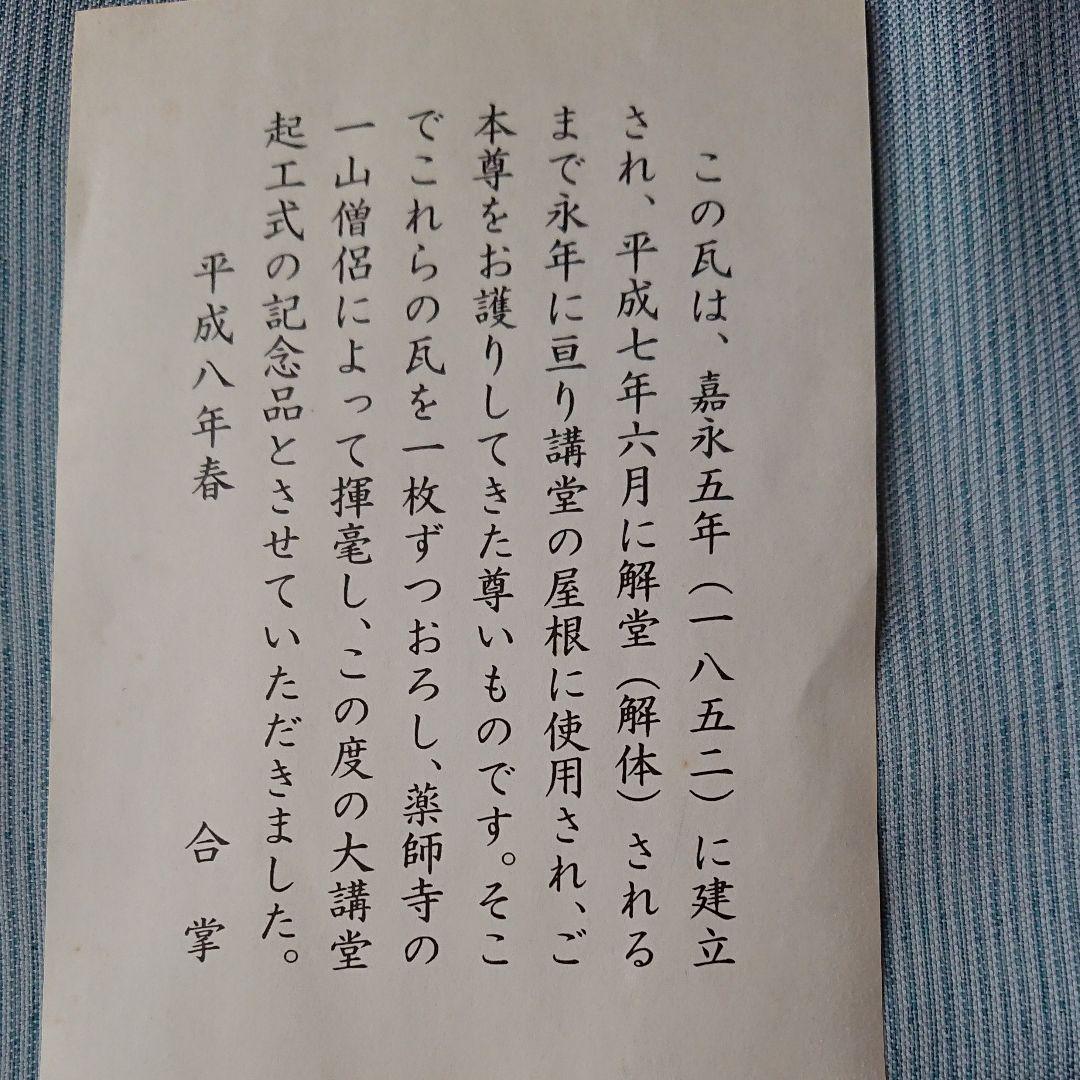 この瓦は、嘉永五年（一八五二）に建立
され、平成七年六月に解堂（解体）される
まで永年に亘り講堂の屋根に使用され、ご
本尊をお護りしてきた尊いものです。そこ
でこれらの瓦を一枚ずつおろし、薬師寺の
一山僧侶によって揮毫し、この度の大講堂
起工式の記念品とさせていただきました。
平成八年春
合掌